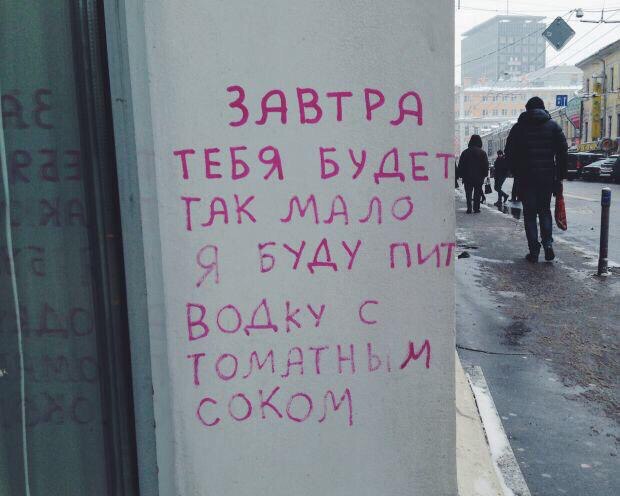 ЗАВТРА
ТЕБЯ БУДЕТ
ТАК МАЛО
Я БУДУ ПИТ
ВОДКУ С
ТОМАТНЫМ
СОКОМ